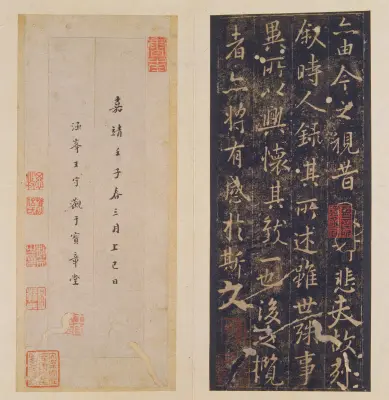 亦由今之視昔悲夫故列
叙時人錄其所述雖世殊事
異所以興懷其致一也後之攬
者亦將有感於斯文
嘉靖壬子春三月上巳日
涵峯王宇觀于寶章堂